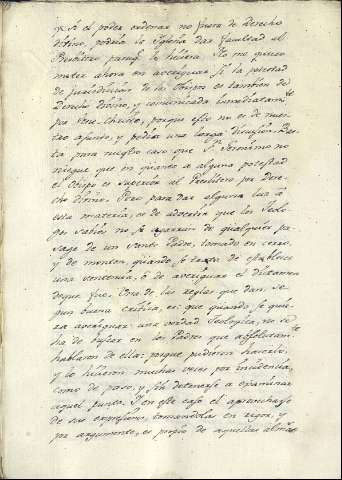 y Si el poder ordenar no fuera de derecho
divino, podria la Iglesia dar facultad al
Presbitero para q. lo hiciera. Yo no quiero
meter ahora en averiguar si la potestad
de jurisdiccion de los Obispos es tambien de
Derecho divino, y comunicada inmediatam.te
por Jesu-Christo, porque esto no es de nues-
tro asunto, y pedia una larga discusion. Bas-
ta para nuestro caso que S.n Geronimo no
niegue que en quanto a alguna potestad
el Obispo es superior al Presbitero por Dere-
cho divino. Pero para dar alguna luz á
esta materia, es de advertir que los Teolo-
gos sabios no se agarran de qualquier pa-
sage de un Santo Padre, tomado en cerro,
y de monton, quando se trata de establecer
una sentencia, ó de averiguar el dictamen
de que fue. Una de las reglas que dan, se-
gun buena critica, es: que quando se quie-
ra averiguar una verdad Teologica, no se
ha de buscar en los Padres que absolutam.te
hablaron de ella; porque pudieron hacerlo,
y lo hicieron muchas veces por incidencia,
como de paso, y sin detenerse a examinar
aquel punto. Y en este caso el aprovecharse
de sus expresiones, tomandolas en rigor, y
por argumento, es propio de aquellas almas